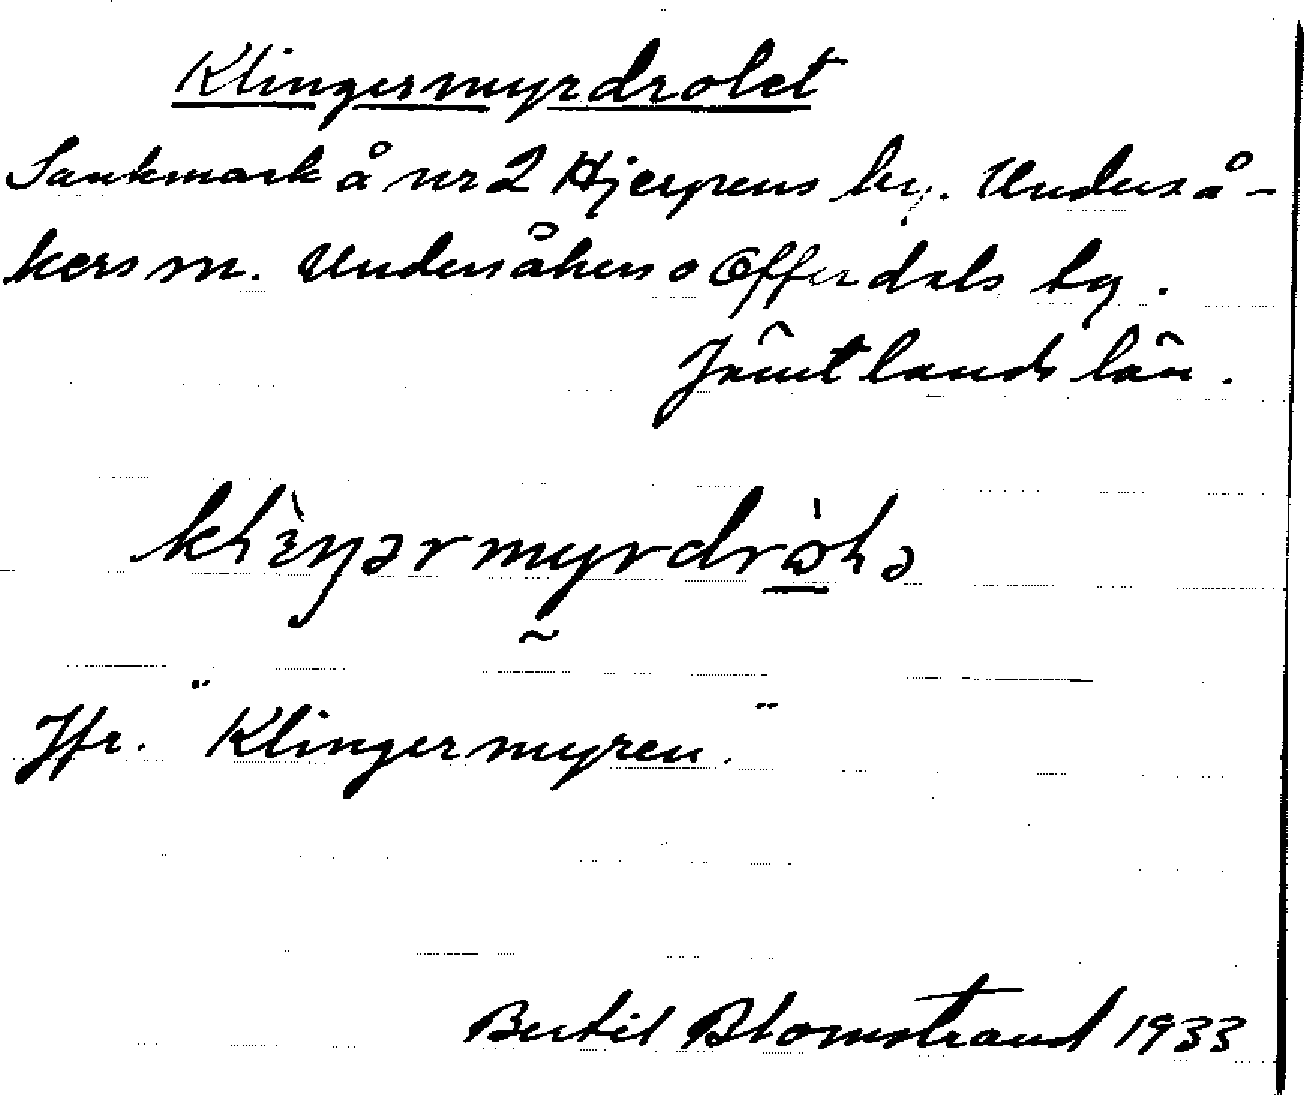 Klingermyrdrolet
Sankmark å nr 2 Hjerpens by. Underså-
kers sn. Undersåkers o Offerdals tg.
Jämtlands län.
klèŋərmyrdròlə
Jfr. "Klingermyren."
Bertil Blomstrand 1933